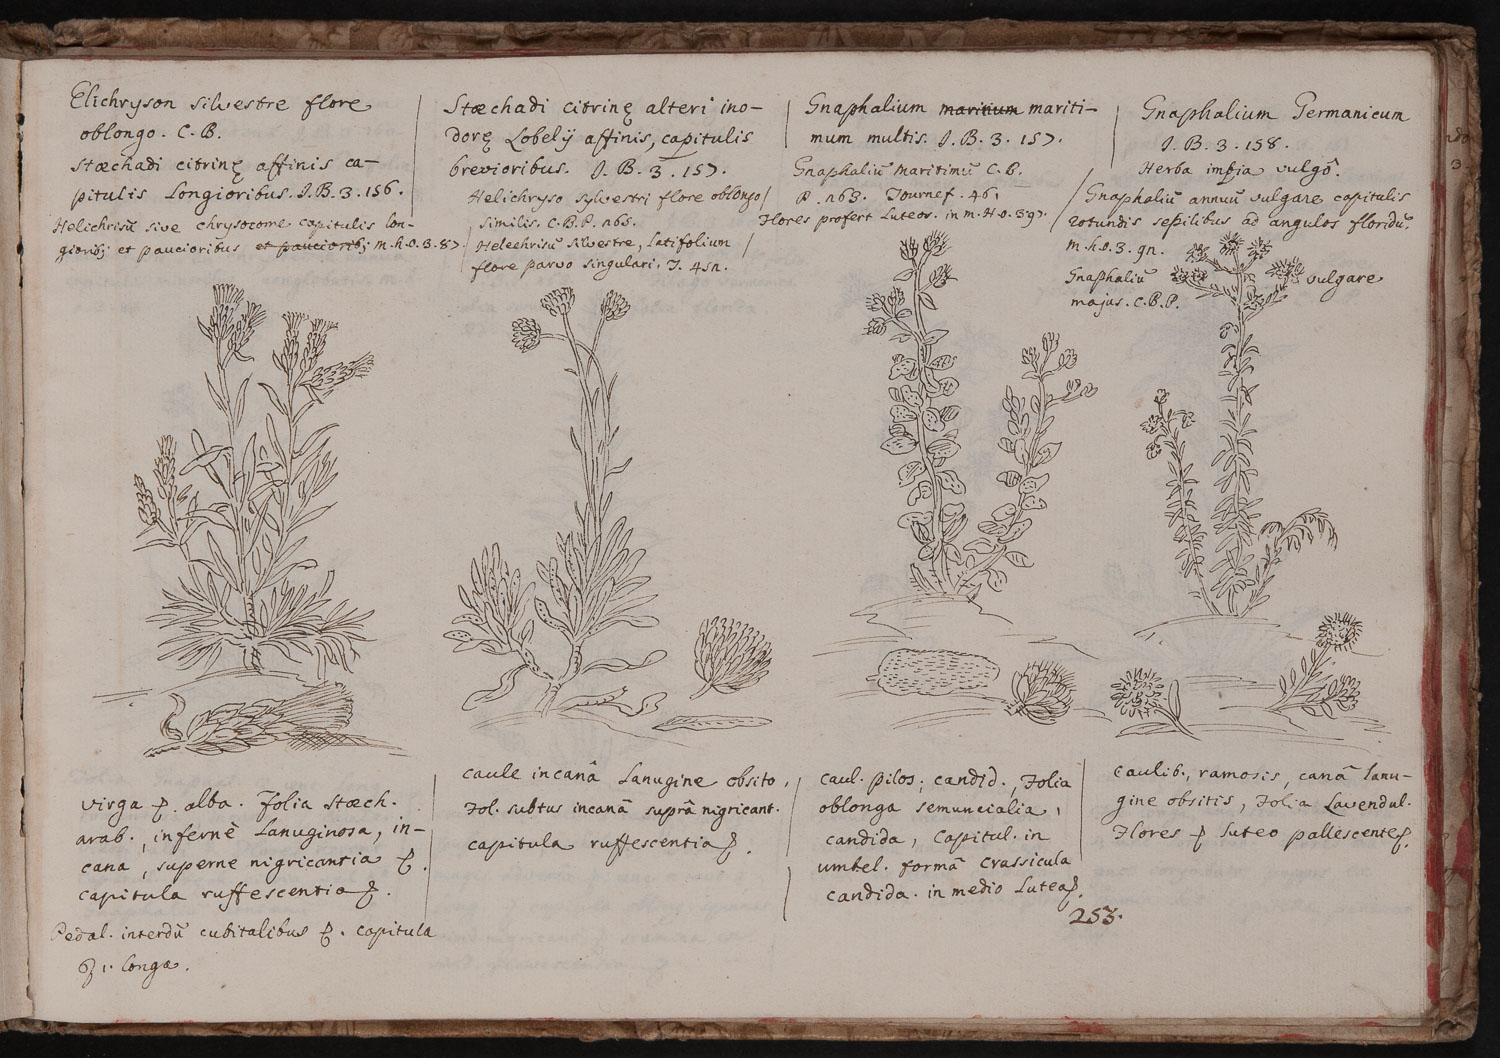 Elichryson silvestre flore
oblongo. C.B.
Stœchadi citrinę affinis ca-
pitulis Longioribus. J.B.3.156.
Helichrisū sive chrysocome capitulis lon-
giorib; et paucioribus et paucriorib; m.h.o.3.87.
Stœchadi citrinę alteri ino-
dorę Lobelÿ affinis, capitulis
brevioribus. J.B.3.157.
Helichryso sylvestri flore oblongo
similis. C.B.P. 265.
Heleehrisū silvestre, Latifolium
flore parvo singulari. T. 452.
Gnaphalium maritium mariti-
mum multis. J.B.3.157.
Gnaphaliū Maritimū C.B.
P. 263. Tournef. 461
Flores profert Luteos. in m.H.o.397.
Gnaphalium Germanicum
J.B.3.158.
Herba impia vulgô.
Gnaphaliū annuū vulgare capitulis
rotundis sepilibus ad angulos floridū.
m.h.o.3.92.
Gnaphaliū vulgare
majus. C.B.P.
virga ꝑ. alba. folia stœch.
arab., infernè Lanuginosa, in-
cana, superne nigricantia ꝑ.
capitula ruffescentia ꝑ.
Pedal. interdū cubitalibus ꝑ. capitula
1. longa.
caule incanâ Lanugine obsito,
Fol. subtus incanâ suprâ nigricant.
capitula ruffescentia ꝑ.
caul. pilos; candid., Folia
oblonga semuncialia,
candida, Capitul. in
umbel. formâ Crassicula
candida. in medio Lutea ꝑ.
253.
caulib., ramosis, canâ lanu-
gine obsitis, Folia Lavendul.
Flores ꝑ luteo pallescente ꝑ.